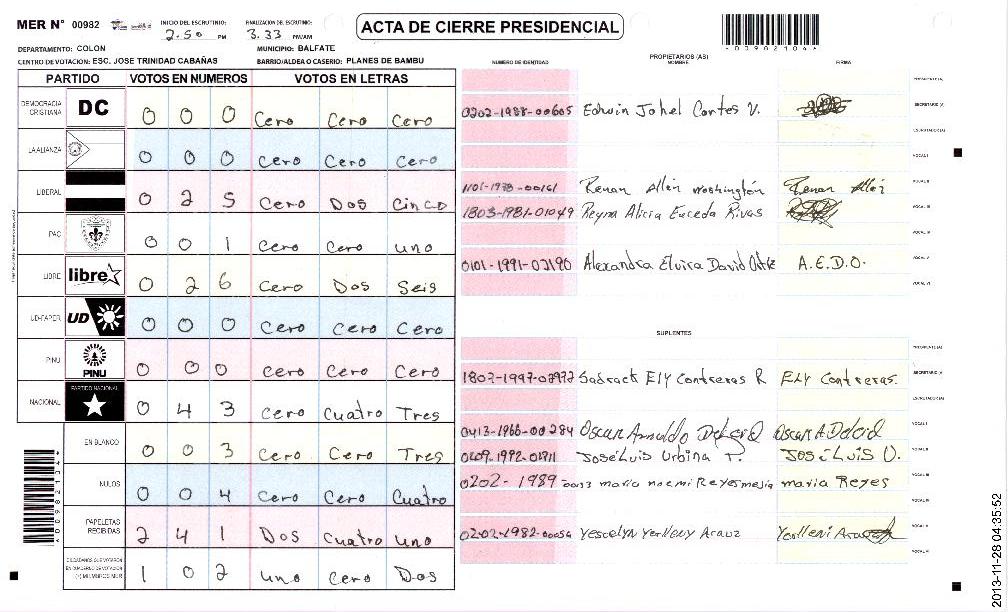 MER N° 00982 INICIO DEL ESCRUTINIO: 2.50 PM FINALIZACIÓN DEL ESCRUTINIO: 3.33 PM/AM
ACTA DE CIERRE PRESIDENCIAL
DEPARTAMENTO: COLON MUNICIPIO: BALFATE
CENTRO DE VOTACION: ESC. JOSE TRINIDAD CABAÑAS BARRIO/ALDEA O CASERIO: PLANES DE BAMBU
PARTIDO VOTOS EN NUMEROS VOTOS EN LETRAS
DEMOCRACIA CRISTIANA DC 0 0 0 Cero Cero Cero
LA ALIANZA 0 0 0 Cero Cero Cero
LIBERAL 0 2 5 Cero Dos Cinco
PAC 0 0 1 Cero Cero uno
LIBRE libre 0 2 6 Cero Dos Seis
UD-FAPER UD 0 0 0 Cero Cero Cero
PINU PINU 0 0 0 Cero Cero Cero
NACIONAL PARTIDO NACIONAL 0 4 3 Cero Cuatro Tres
EN BLANCO 0 0 3 Cero Cero Tres
NULOS 0 0 4 Cero Cero Cuatro
PAPELETAS RECIBIDAS 2 4 1 Dos Cuatro uno
CIUDADANOS QUE VOTARON EN CUADERNO DE VOTACION (+) MIEMBROS MER 1 0 2 uno Cero Dos
*00982104*
NUMERO DE IDENTIDAD PROPIETARIOS (AS) NOMBRE FIRMA
PRESIDENTE (A)
0202-1988-00605 Edwin Johel Cortes V. SECRETARIO (A)
ESCRUTADOR (A)
VOCAL I
1101-1978-00161 Renan Allén Washington Renan Allén VOCAL II
1803-1981-01049 Reyna Alicia Euceda Rivas VOCAL III
VOCAL IV
0101-1991-02190 Alexandra Elvira David Ortiz A.E.D.O. VOCAL V
VOCAL VI
SUPLENTES
PRESIDENTE (A)
1807-1997-02972 Sadrack Ely Contreras R Ely Contreras. SECRETARIO (A)
ESCRUTADOR (A)
0413-1966-00284 Oscar Arnaldo VOCAL I
0209-1992-01911 José Luis Urbina P. José Luis U.
0202-1989 0013 maria noemi Reyes mejia maria Reyes VOCAL III
VOCAL IV
0202-1982-00054 Yesvelyn Yerlleny Arauz VOCAL V
VOCAL VI
2013-11-28 04:35:52